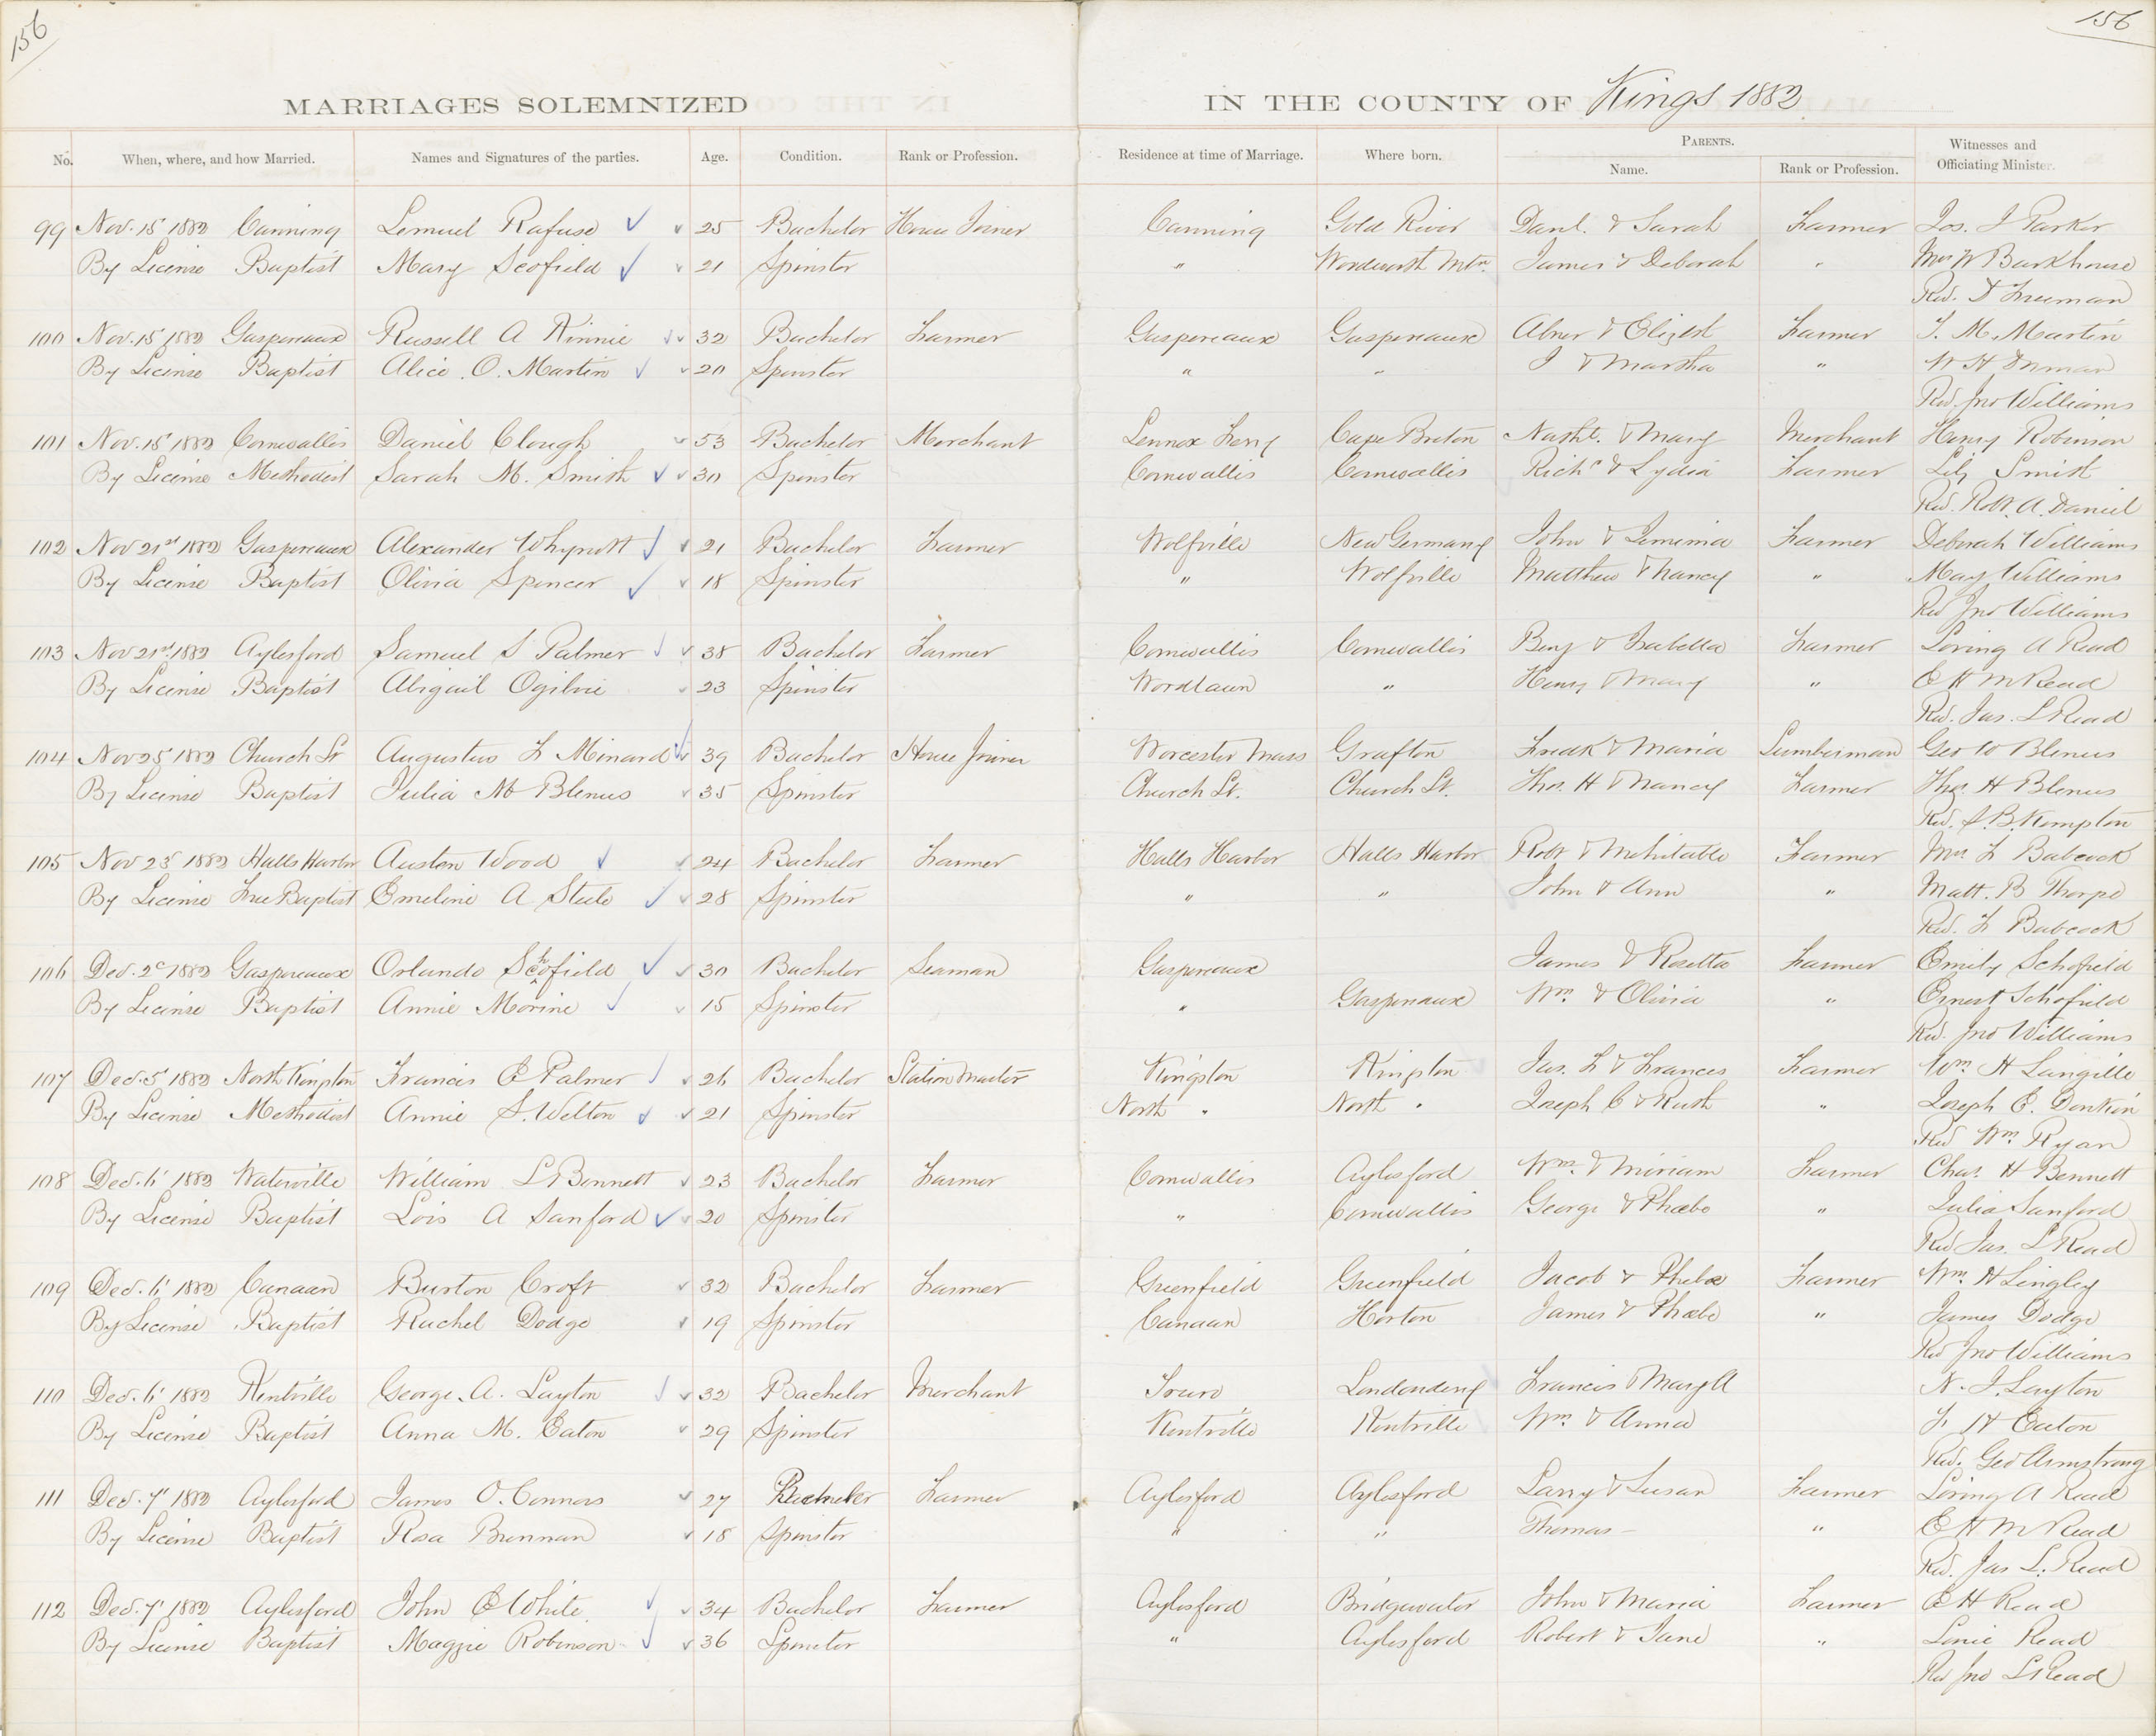 156
156
MARRIAGES SOLEMNIZED IN THE COUNTY OF Kings 1882
No. When, where, and how Married. Names and Signatures of the parties. Age. Condition. Rank or Profession. Residence at time of Marriage. Where born. PARENTS. Name. Rank or Profession. Witnesses and Officiating Minister.
99 Nov. 15 1882 Canning Lemuel Rafuse 25 Bachelor House Joiner Canning Gold River Danl. & Sarah Farmer Jos. J Parker
By License Baptist Mary Scofield 21 Spinster " Wordworth Mtn. James & Deborah " Mrs W Burkhouse
Rev. D Freeman
100 Nov. 15 1882 Gaspereaux Russell A Kinnie 32 Bachelor Farmer Gaspereaux Gaspereaux Abner & Elizbt Farmer J. M. Martin
By License Baptist Alice O. Martin 20 Spinster " " J & Marsha " W H
Rev. Jno Williams
101 Nov. 15 1882 Cornwallis Daniel Clough 53 Bachelor Merchant Lennox Ferry Cape Breton Nathl. & Mary Merchant Henry Robinson
By License Methodist Sarah M. Smith 30 Spinster Cornwallis Cornwallis Richd & Lydia Farmer Liz Smith
Rev. Robt. A. Daniel
102 Nov 21st 1882 Gaspereaux Alexander Whynott 21 Bachelor Farmer Wolfville New Germany John & Jemima Farmer Deborah Williams
By License Baptist Olivia Spencer 18 Spinster " Wolfville Matthew & Nancy " May Williams
Rev Jno Williams
103 Nov 21st 1882 Aylesford Samuel S Palmer 38 Bachelor Farmer Cornwallis Cornwallis Benj & Isabella Farmer Loring A Read
By License Baptist Abigail Ogilvie 23 Spinster Woodlawn " Henry & Mary " E H M Read
Rev. Jas. L Read
104 Nov 25 1882 Church St Augustus F Minard 39 Bachelor House Joiner Worcester Mass Grafton Fredk & Maria Lumberman Geo W Blenus
By License Baptist Julia M Blenus 35 Spinster Church St. Church St. Tho. H & Nancy Farmer Thos. H Blenus
Rev. S. B. Kempton
105 Nov 25 1882 Halls Harbor Austen Wood 24 Bachelor Farmer Halls Harbor Halls Harbor Robt & Mehitable Farmer Mrs F Babcock
By License Free Baptist Emeline A Steele 28 Spinster " " John & Ann " Matt. B Thorpe
Rev. F Babcock
106 Dec. 2d 1882 Gaspereaux Orlando Schofield 30 Bachelor Seaman Gaspereaux James & Rosetta Farmer Emily Schofield
By License Baptist Annie Morine 15 Spinster " Gaspereaux Wm. & Olivia " Ernest Schofield
Rev. Jno Williams
107 Dec. 5 1882 North Kingston Francis E Palmer 26 Bachelor Station Master Kingston Kingston Jas. F & Frances Farmer Wm. H Langille
By License Methodist Annie S. Welton 21 Spinster North " North " Joseph C & Ruth " Joseph E. Donkin
Rev Wm. Ryan
108 Dec. 6 1882 Waterville William L Bennett 23 Bachelor Farmer Cornwallis Aylesford Wm. & Miriam Farmer Chas. H Bennett
By License Baptist Lois A Sanford 20 Spinster " Cornwallis George & Phoebe " Julia Sanford
Rev Jas. L Read
109 Dec. 6 1882 Canaan Burton Croft 32 Bachelor Farmer Greenfield Greenfield Jacob & Phebe Farmer Wm. H Lingley
By License Baptist Rachel Dodge 19 Spinster Canaan Horton James & Phoebe " James Dodge
Rev Jno Williams
110 Dec. 6 1882 Kentville George. A. Layton 32 Bachelor Merchant Truro Londonderry Francis & Mary A N. J. Layton
By License Baptist Anna M. Eaton 29 Spinster Kentville Kentville Wm. & Anna F H Eaton
Rev. Geo Armstrong
111 Dec. 7 1882 Aylesford James O. Connors 27 Bachelor Farmer Aylesford Aylesford Larry & Susan Farmer Loring A Read
By License Baptist Rosa Brennan 18 Spinster " " Thomas — " E H M Read
Rev. Jas L. Read
112 Dec. 7 1882 Aylesford John E White 34 Bachelor Farmer Aylesford Bridgewater John & Maria Farmer E H Read
By License Baptist Maggie Robinson 36 Spinster " Aylesford Robert & Jane " Lenie Read
Rev Jno L Read